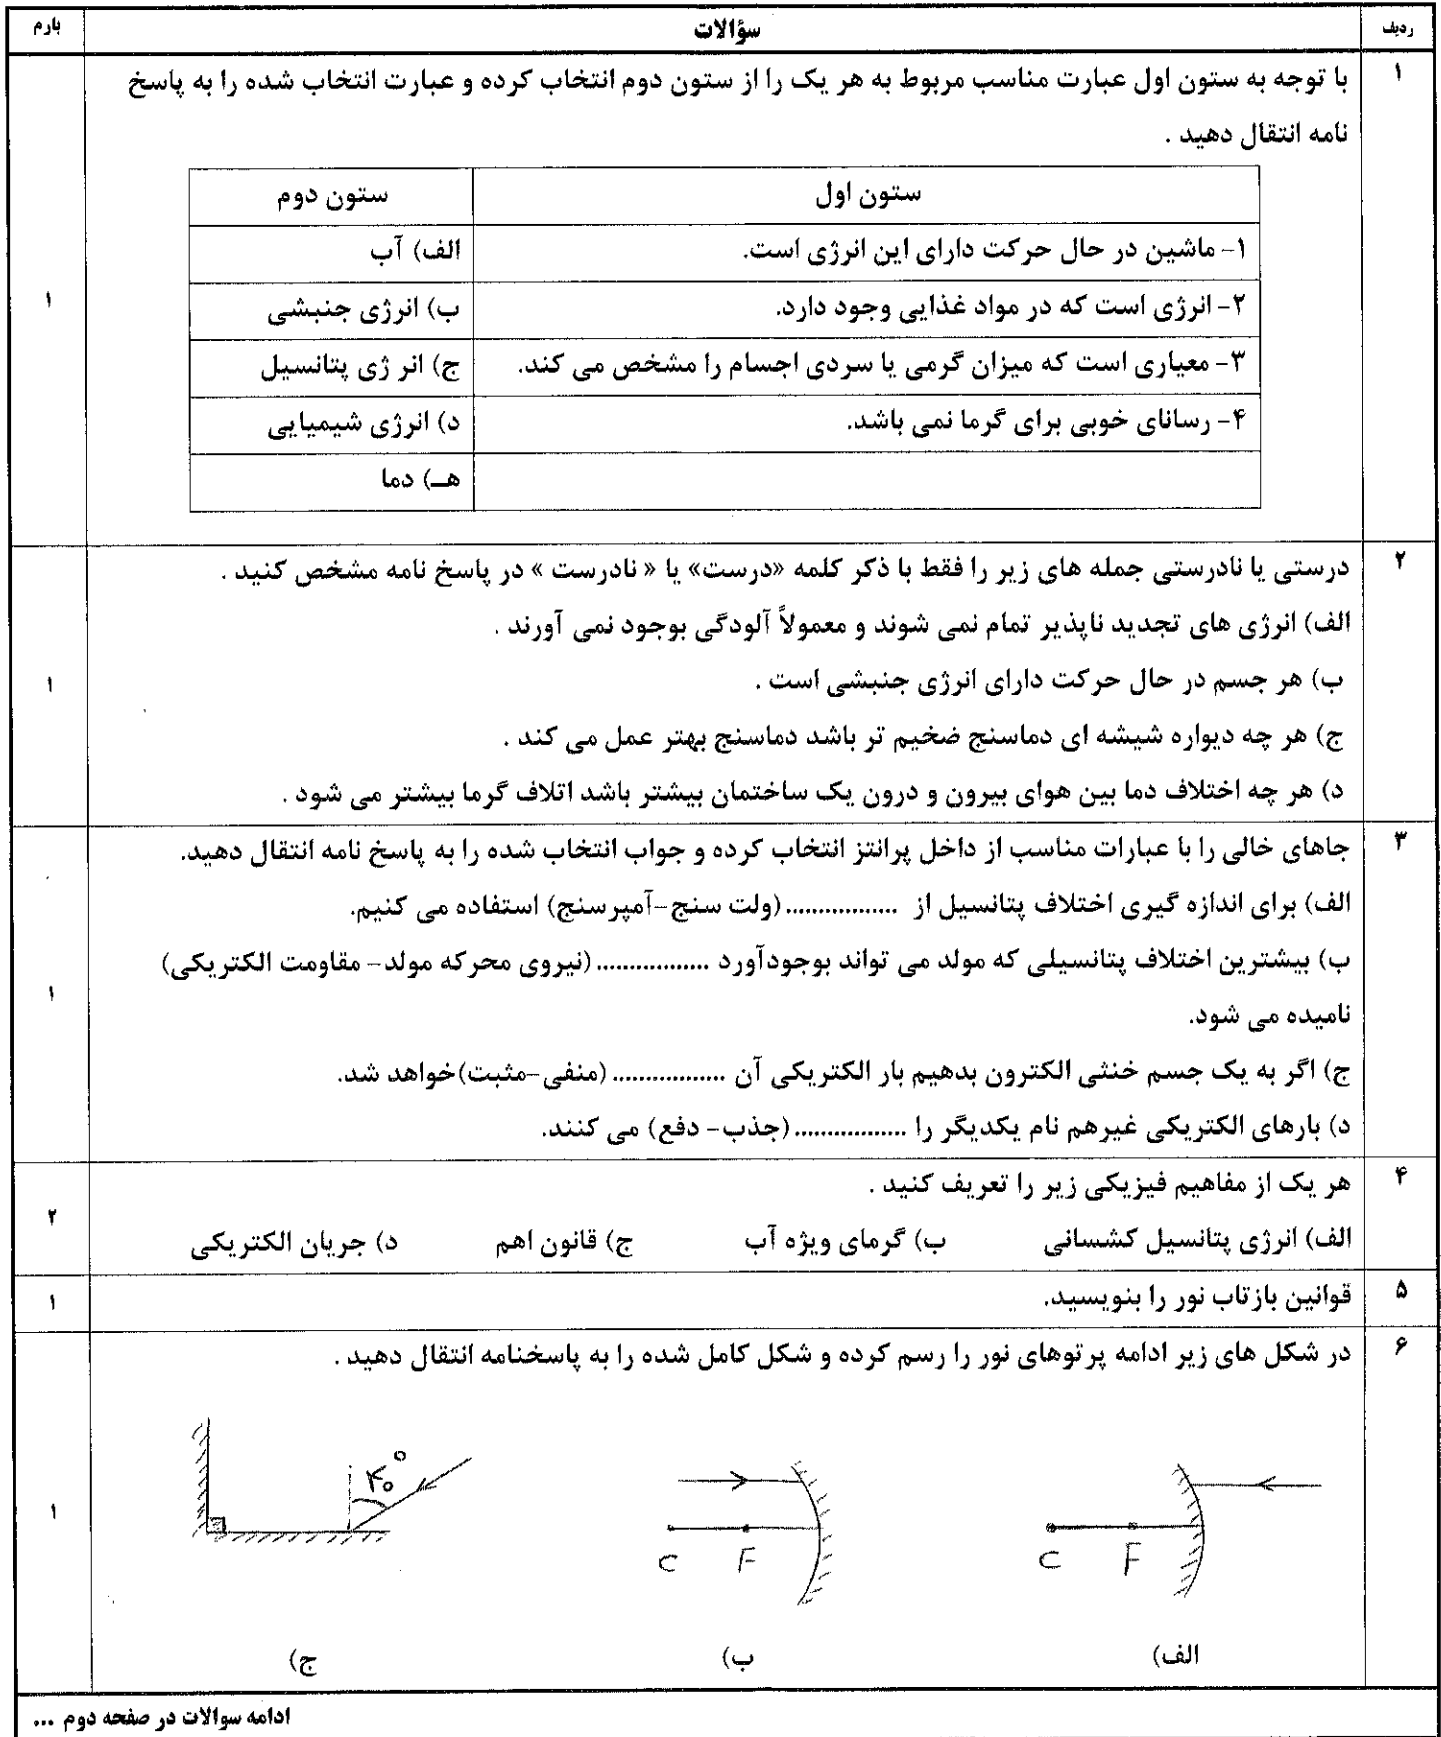 ردیف سؤالات بارم
۱ با توجه به ستون اول عبارت مناسب مربوط به هر یک را از ستون دوم انتخاب کرده و عبارت انتخاب شده را به پاسخ
نامه انتقال دهید .
ستون اول ستون دوم
۱- ماشین در حال حرکت دارای این انرژی است. الف) آب
۲- انرژی است که در مواد غذایی وجود دارد. ب) انرژی جنبشی
۱
۳- معیاری است که میزان گرمی یا سردی اجسام را مشخص می کند. ج) انر ژی پتانسیل
۴- رسانای خوبی برای گرما نمی باشد. د) انرژی شیمیایی
هـ) دما
۲ درستی یا نادرستی جمله های زیر را فقط با ذکر کلمه «درست» یا « نادرست » در پاسخ نامه مشخص کنید .
الف) انرژی های تجدید ناپذیر تمام نمی شوند و معمولاً آلودگی بوجود نمی آورند .
ب) هر جسم در حال حرکت دارای انرژی جنبشی است . ۱
ج) هر چه دیواره شیشه ای دماسنج ضخیم تر باشد دماسنج بهتر عمل می کند .
د) هر چه اختلاف دما بین هوای بیرون و درون یک ساختمان بیشتر باشد اتلاف گرما بیشتر می شود .
۳ جاهای خالی را با عبارات مناسب از داخل پرانتز انتخاب کرده و جواب انتخاب شده را به پاسخ نامه انتقال دهید.
الف) برای اندازه گیری اختلاف پتانسیل از .................(ولت سنج-آمپرسنج) استفاده می کنیم.
ب) بیشترین اختلاف پتانسیلی که مولد می تواند بوجودآورد .................(نیروی محرکه مولد- مقاومت الکتریکی)
۱
نامیده می شود.
ج) اگر به یک جسم خنثی الکترون بدهیم بار الکتریکی آن .................(منفی-مثبت)خواهد شد.
د) بارهای الکتریکی غیرهم نام یکدیگر را .................(جذب- دفع) می کنند.
۴ هر یک از مفاهیم فیزیکی زیر را تعریف کنید .
۲
الف) انرژی پتانسیل کشسانی ب) گرمای ویژه آب ج) قانون اهم د) جریان الکتریکی
۵ قوانین بازتاب نور را بنویسید. ۱
۶ در شکل های زیر ادامه پرتوهای نور را رسم کرده و شکل کامل شده را به پاسخنامه انتقال دهید .
۴۰°
۱
C F
C F
الف) ب) ج)
ادامه سوالات در صفحه دوم ...